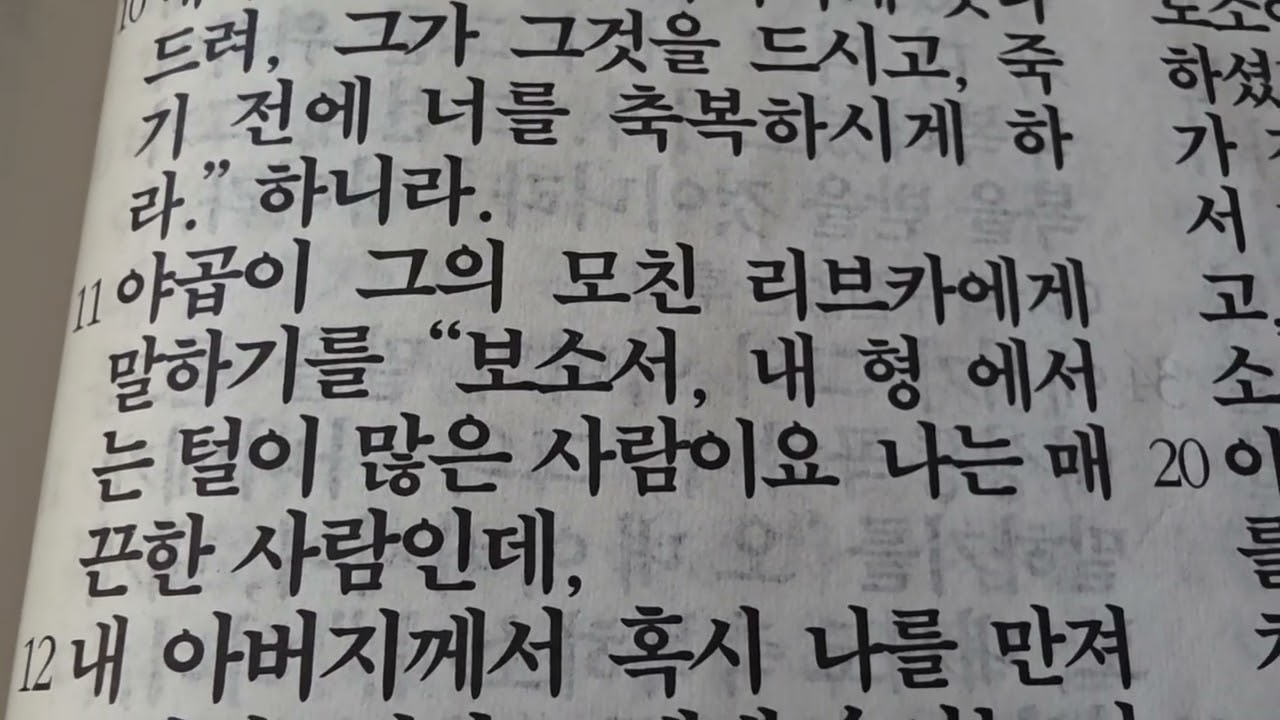 드려, 그가 그것을 드시고, 죽
기 전에 너를 축복하시게 하
라.” 하니라.
11 야곱이 그의 모친 리브카에게
말하기를 “보소서, 내 형 에서
는 털이 많은 사람이요 나는 매
끈한 사람인데,
12 내 아버지께서 혹시 나를 만져
하셨
가
서
고,
소
20 아
를